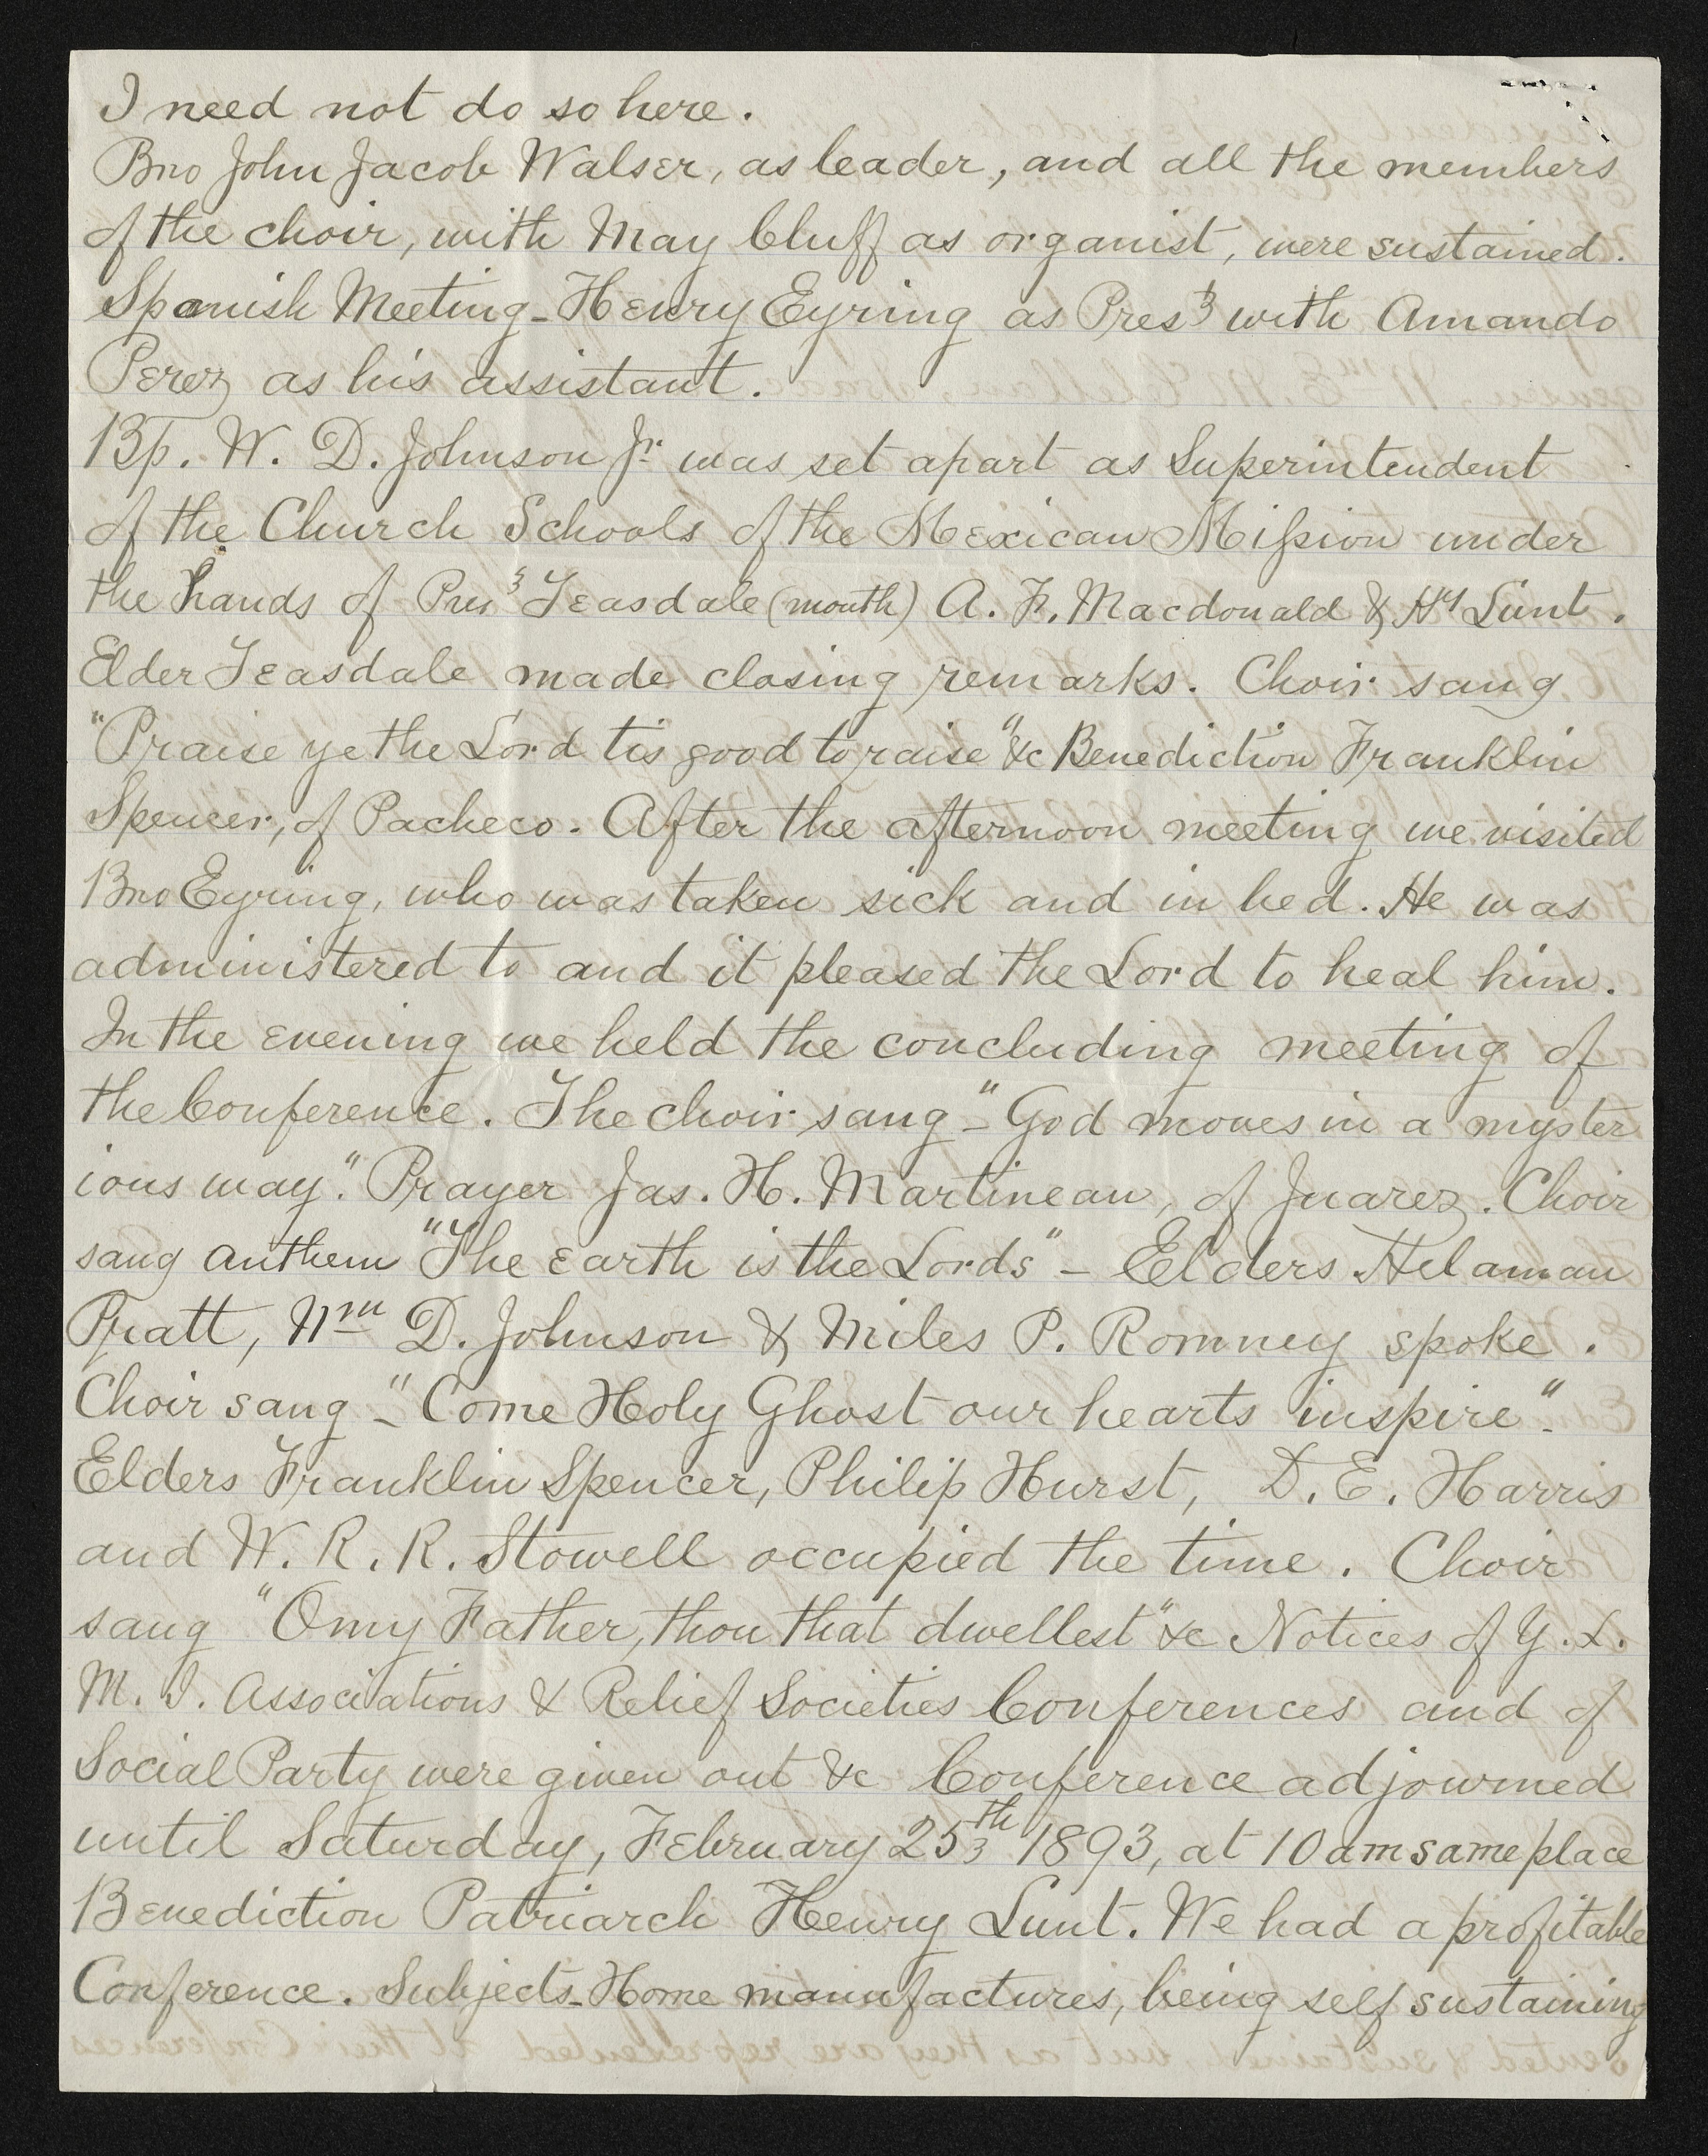 I need not do so here.
Bro John Jacob Walser, as leader, and all the members
of the choir, with May Cluff as organist, were sustained.
Spanish Meeting - Henry Eyring as Prest with Amando
Perez as his assistant.
Bp. W. D. Johnson Jr was set apart as Superintendent
of the Church Schools of the Mexican Mission under
the hands of Prest Teasdale (mouth) A. F. Macdonald & Hy Lunt.
Elder Teasdale made closing remarks. Choir sang
"Praise ye the Lord tis good to raise" &c Benediction Franklin
Spencer, of Pacheco. After the afternoon meeting we visited
Bro Eyring, who was taken sick and in bed. He was
administered to and it pleased the Lord to heal him.
In the evening we held the concluding meeting of
the Conference. The choir sang - "God moves in a myster
ious way." Prayer Jas. H. Martineau, of Juarez. Choir
sang anthem "The earth is the Lords" - Elders Helaman
Pratt, Wm D. Johnson & Miles P. Romney spoke.
Choir sang - "Come Holy Ghost our hearts inspire" -
Elders Franklin Spencer, Philip Hurst, D. E. Harris
and W. R. R. Stowell occupied the time. Choir
sang "O my Father, thou that dwellest" &c Notices of Y. L.
M. I. Associations & Relief Societies Conferences and of
Social Party were given out &c Conference adjourned
until Saturday, February 25th 1893, at 10 am same place
Benediction Patriarch Henry Lunt. We had a profitable
Conference. Subjects - Home manufactures, being self sustaining